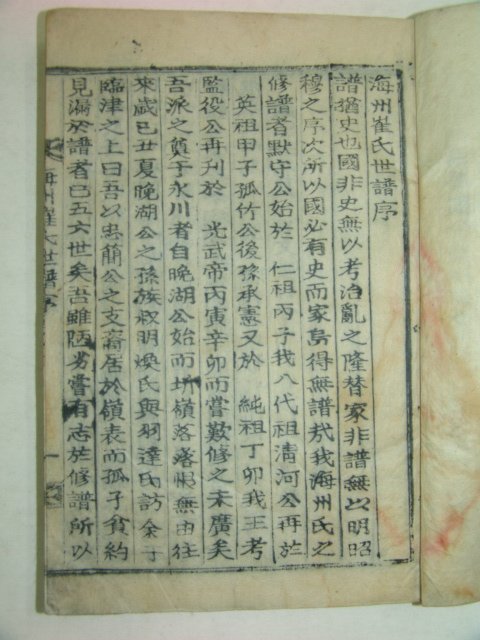 海州崔氏世譜序
譜猶史也國非史無以考治亂之隆替家非譜無以明昭
穆之序次所以國必有史而家烏得無譜哉我海州氏之
修譜者默守公始於 仁祖丙子我八代祖淸河公再於
英祖甲子孤竹公後孫承憲又於 純祖丁卯我王考
監役公再刊於 光武帝丙寅辛卯而嘗歎修之未廣矣
吾派之奠于永川者自晩湖公始而圻嶺落落邈無由往
來歲己丑夏晩湖公之孫族叔明煥氏與羽達氏訪余于
臨津之上曰吾以忠簡公之支裔居於嶺表而孤子貧約
見漏於譜者已五六世矣吾雖陋劣嘗有志於修譜所以
海州崔氏世譜序
一